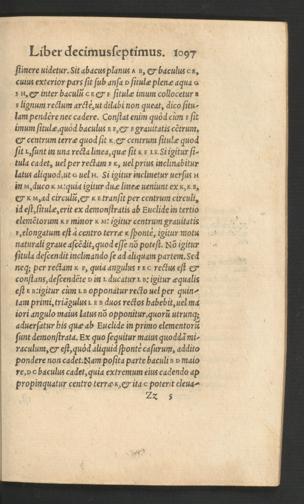 Liber decimusseptimus. 1097
stinere uidetur. Sit abacus planus A B, & baculus C B,
cuius exterior pars sit sub ansa D situlæ plenæ aqua G
F H, & inter baculũ C E & F situlæ imum collocetur E
F lignum rectum arctè, ut dilabi non queat, dico situ-
lam pendère nec cadere. Constat enim quòd cùm F sit
imum situlæ, quòd baculus E F, & F grauitatis cẽtrum,
& centrum terræ quod sit K, & centrum situlæ quod
sit L, sunt in una recta linea, quæ sit K F L E. Si igitur si-
tula cadet, uel per rectam F K, uel prius inclinabitur
latus aliquod, ut G uel H. Si igitur inclinetur uersus H
in M, duco K M: quia igitur duæ lineæ ueniunt ex K, K F,
& K M, ad circulũ, & K F transit per centrum circuli,
id est, situlæ, erit ex demonstratis ab Euclide in tertio
elemẽtorum K F minor K M: igitur centrum grauitatis
F, elongatum est à centro terræ K spontè, igitur motu
naturali graue ascẽdit, quod esse nõ potest. Nõ igitur
situla descendit inclinando se ad aliquam partem. Sed
neq; per rectam K F, quia angulus F E C rectus est &
constans, descendẽte D in L ducatur L B: igitur æqualis
est E B: igitur cùm L B opponatur recto uel per quin-
tam primi, triãgulus L E B duos rectos habebit, uel ma
iori angulo maius latus nõ opponitur, quorũ utrunq;
aduersatur his quæ ab Euclide in primo elementorũ
sunt demonstrata. Ex quo sequitur maius quoddã mi-
raculum, & est, quòd aliquid spontè casurum, addito
pondere non cadet. Nam posita parte baculi B D maio
re, D C baculus cadet, quia extremum eius cadendo ap
propinquatur centro terræ K, & ita C poterit eleua-
Zz 5